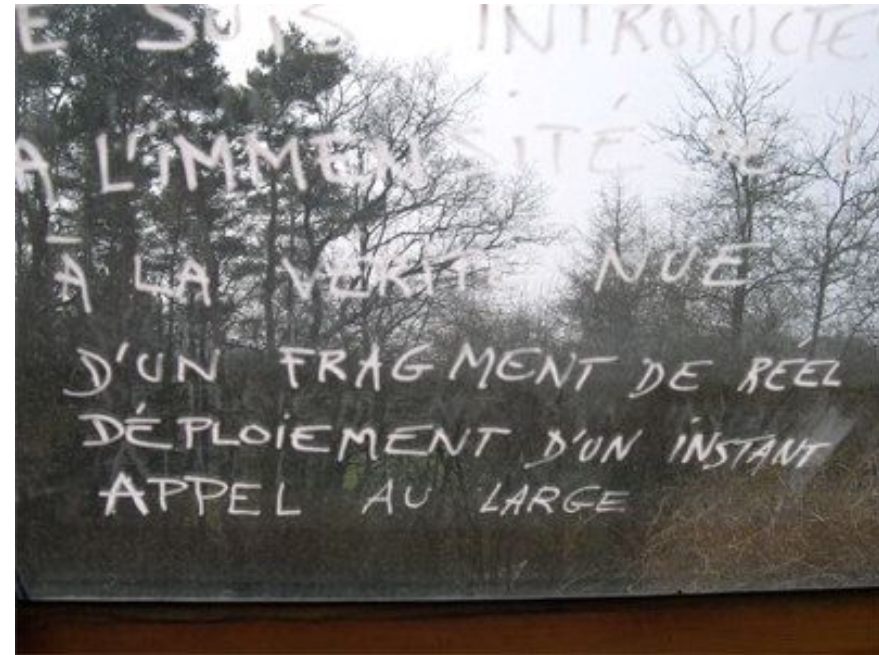 E SUIS INTRODUCTE
A L'IMMENSITÉ DE L
À LA VÉRITÉ NUE
D'UN FRAGMENT DE RÉEL
DÉPLOIEMENT D'UN INSTANT
APPEL AU LARGE